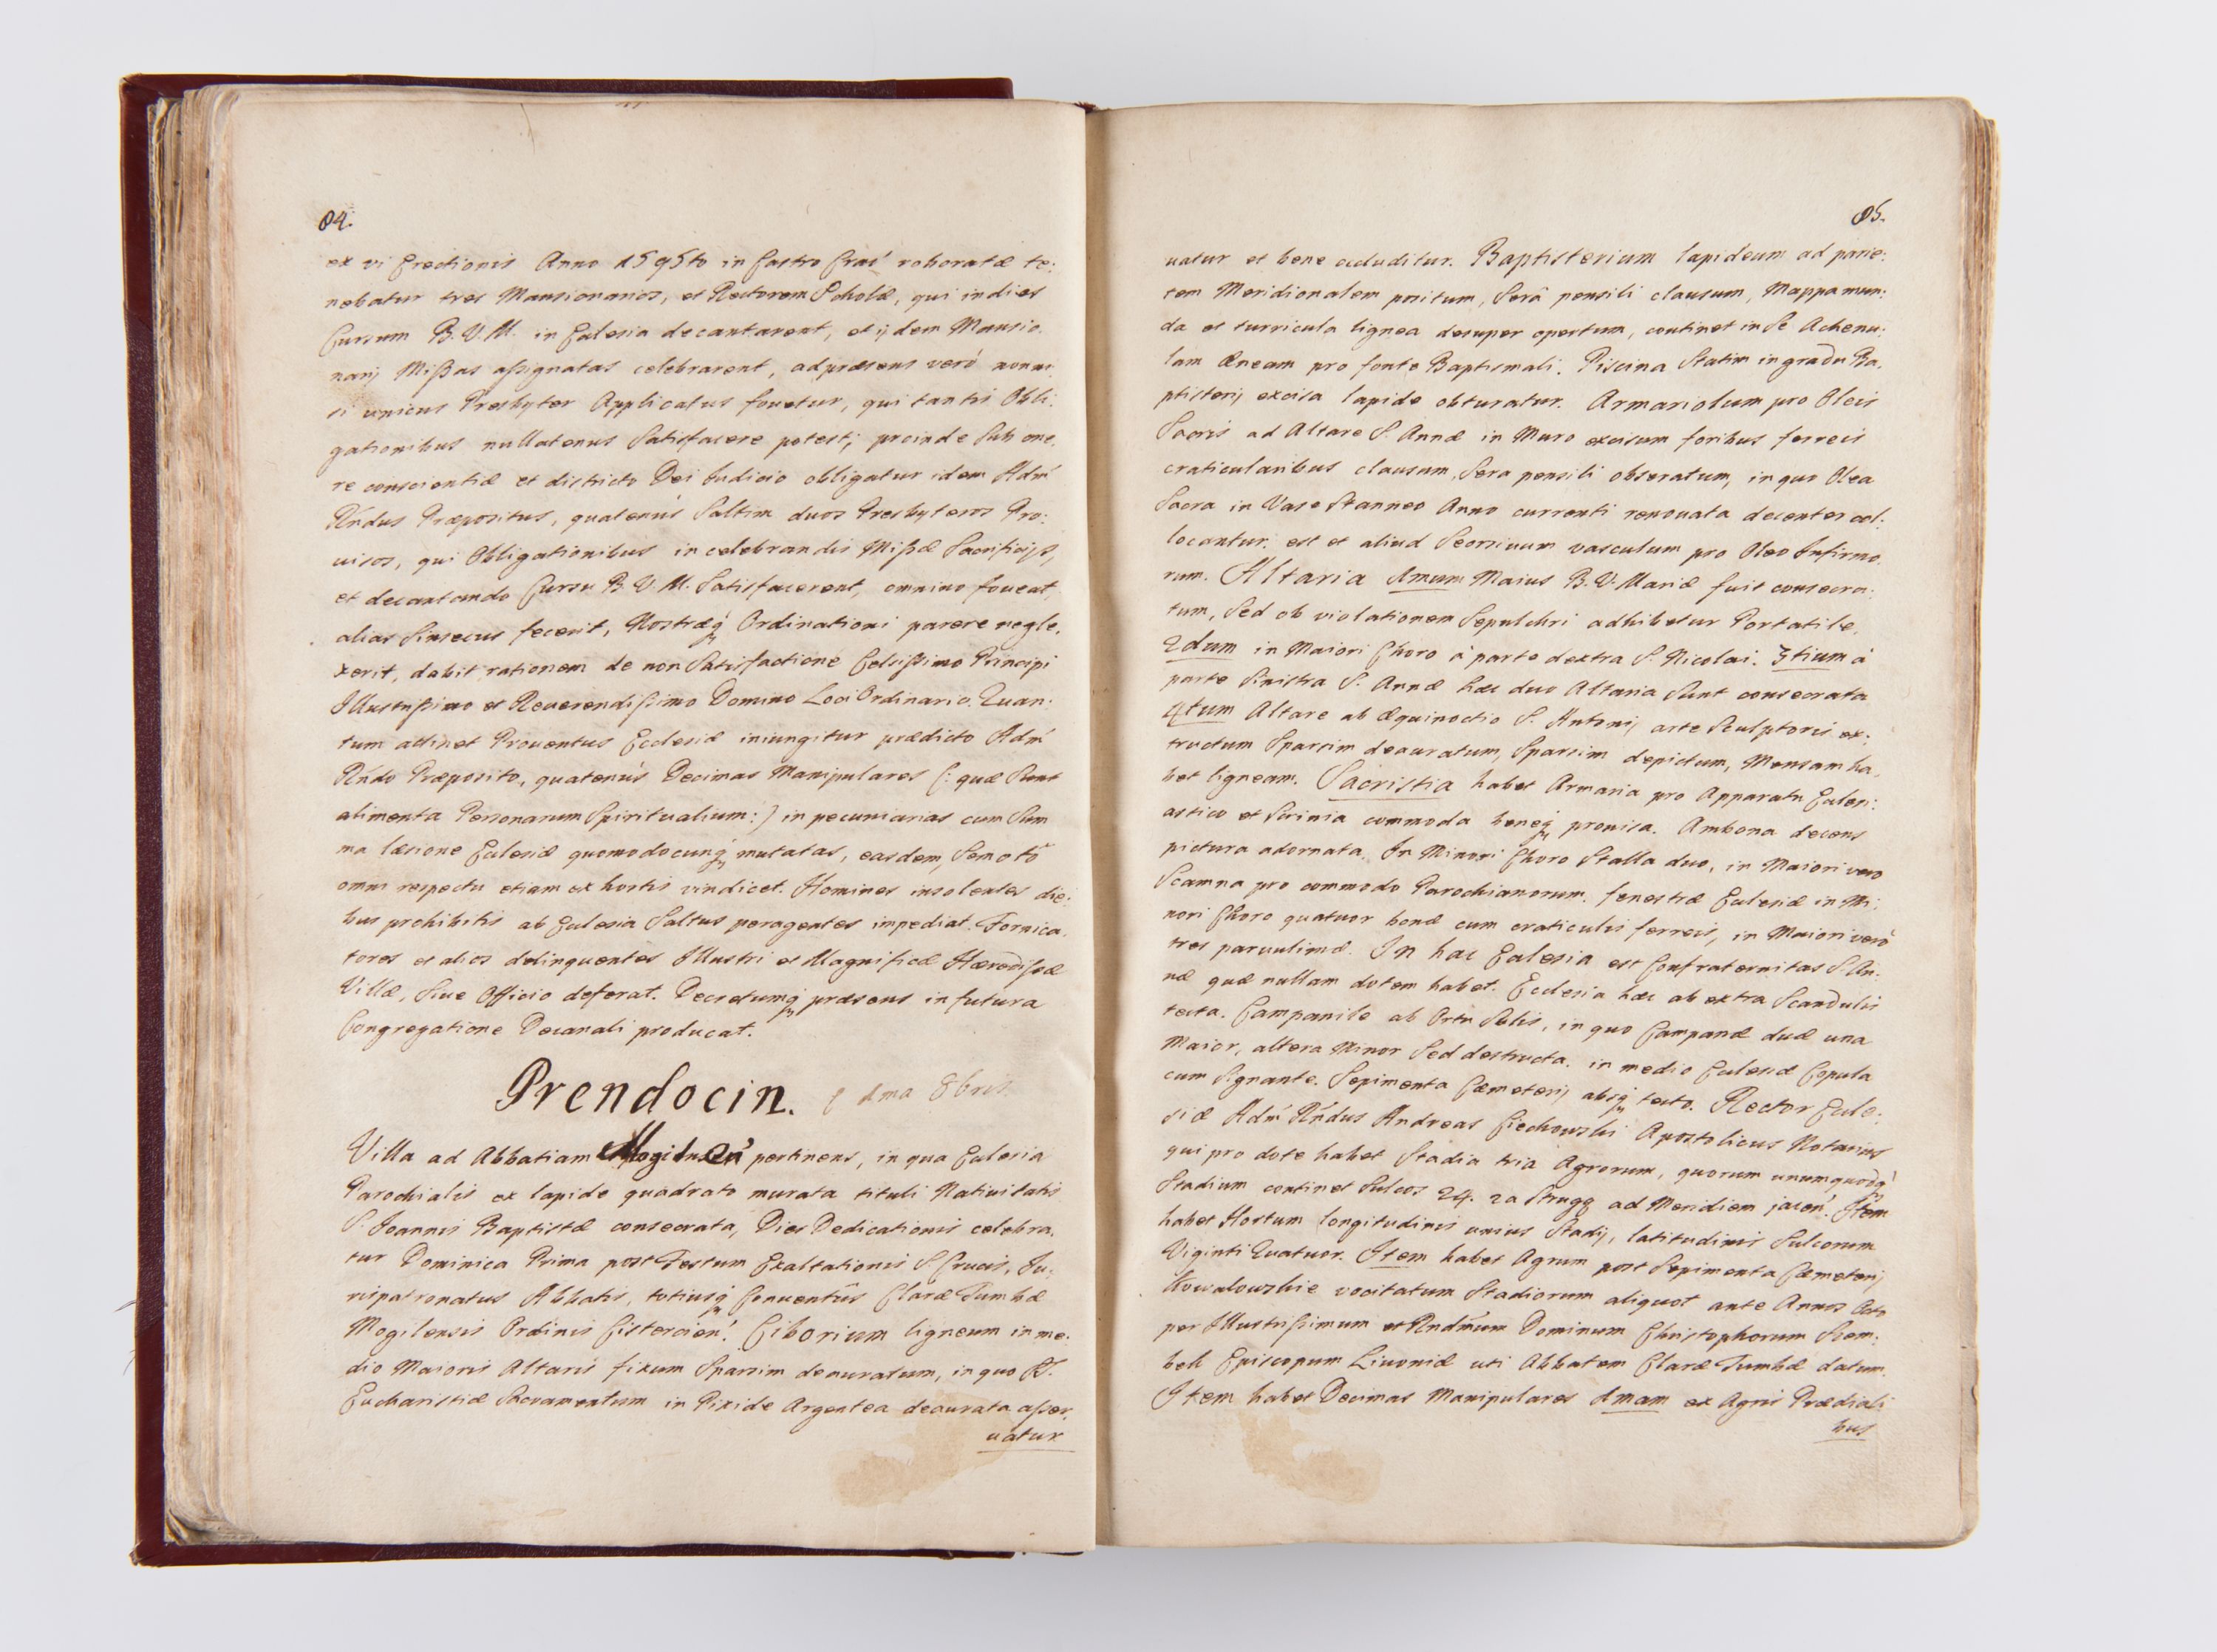 84.
ex vi Erectionis Anno 1595to in Castro Crac' roboratæ te:
nebatur tres Mansionarios, et Rectorem Scholæ, qui indies
Cursum B. V. M. in Ecclesia decantarent, et ijdem Mansio.
narij Mißas aßignatas celebrarent, ad præsens verò nonni.
si unicus Presbyter Applicatus fouetur, qui tantis Obli.
gationibus nullatenus Satisfacere potest; proinde Sub one.
re conscientiæ et districto Dei Judicio obligatur idem Adm'
R'ndus Præpositus, quatenùs Saltim duos Presbyteros Pro:
uisos, qui Obligationibus in celebrandis Mißæ Sacrificijs,
et decantando Cursu B. V. M. Satisfacerent, omnino foueat,
alias Sinsecus fecerit, Nostræq; Ordinationi parere negle.
xerit, dabit rationem de non Satisfactione Celsißimo Principi
Illustrißimo et Reuerendißimo Domino Loci Ordinario. Quan:
tum attinet Prouentus Ecclesiæ iniungitur prædicto Adm'
R'ndo Præposito, quatenùs Decimas Manipulares (: quæ Sunt
alimenta Personarum Spiritualium :) in pecuniarias cum Sum
ma læsione Ecclesiæ quomodocunq; mutatas, easdem, Semoto
omni respectu etiam ex hostis vindicet. Homines insolentes die:
bus prohibitis ab Ecclesia Saltus peragentes impediat. Fornica.
tores et alios delinquentes Illustri et Magnificæ Hæredißæ
Villæ, Siue Officio deferat. Decretumq; præsens in futura
Congregatione Decanali producat.
Prendocin. 1ma 8bris
Villa ad Abbatiam Mogilnen' pertinens, in qua Ecclesia
Parochialis ex lapide quadrato murata tituli Natiuitatis
S. Joannis Baptistæ consecrata, Dies Dedicationis celebra.
tur Dominica Prima post Festum Exaltationis S. Crucis, Ju:
rispatronatus Abbatis, totiusq; Conuentûs Claræ Tumbæ
Mogilensis Ordinis Cistercien'. Ciborium ligneum in me:
dio Maioris Altaris fixum Sparsim deauratum, in quo SS.
Eucharistiæ Sacramentum in Pixide Argentea deaurata aßer.
uatur
85.
uatur et bene cluditur. Baptisterium lapideum ad parie:
tem Meridionalem positum, Serâ pensili clausum, Mappa mun:
da et turricula lignea desuper opertum, continet in Se Achenu:
lam Æneam pro fonte Baptismali. Piscina Statim in gradu Ba.
ptisterij excisa lapide obturatur. Armariolum pro Oleis
Sacris ad Altare S. Annæ in Muro excisum foribus ferreis
craticularibus clausum, Sera pensili obseratum, in quo Olea
Sacra in Vase Stanneo Anno currenti renouata decenter col:
locantur. est et aliud Seorsiuum vasculum pro Oleo Infirmo.
rum. Altaria 1mum Maius B. V. Mariæ fuit consecra:
tum, Sed ob violationem Sepulchri adhibetur Portatile.
2dum in Maiori Choro à parte dextra S. Nicolai. 3tium à
parte Sinistra S. Annæ hæc duo Altaria Sunt consecrata
4tum Altare ab Æquinoctio S. Antonij arte Sculptoris ex:
tructum Sparsim deauratum, Sparsim depictum, Mensam ha.
bet ligneam. Sacristia habet Armaria pro Apparatu Eccles:
astico et Scrinia commoda beneq; prouisa. Ambona decens
pictura adornata. In Minori Choro Stalla duo, in Maiori vero
Scamna pro commodo Parochianorum. fenestræ Ecclesiæ in Mi:
nori Choro quatuor bonæ cum craticulis ferreis, in Maiori verò
tres paruulimæ. In hac Ecclesia est Confraternitas S. An:
næ quæ nullam dotem habet. Ecclesia hæc ab extra Scandulis
tecta. Campanile ab Ortu Solis, in quo Campanæ duæ una
Maior, altera Minor Sed destructa. in medio Ecclesiæ Copula
cum Signante. Sepimenta Cæmeterij absq; tecto. Rector Eccle:
siæ Adm' R'ndus Andreas Ciechowski Apostolicus Notarius
qui pro dote habet Stadia tria Agrorum, quorum unumquodq;
Stadium continet Sulcos 24. ad Meridiem jacen'. Item
habet Hortum longitudinis unius Stadij, latitudinis Sulcorum
Viginti Quatuor. Item habet Agrum post Sepimenta Cæmeterij
Kowalowskie vocitatum Stadiorum aliquot ante Annos Octo
per Illustrißimum et Rndm'um Dominum Christophorum Szem:
bek Episcopum Liuoniæ uti Abbatem Claræ Tumbæ datum.
Item habet Decimas Manipulares 1mam ex Agris Prædiali
bus